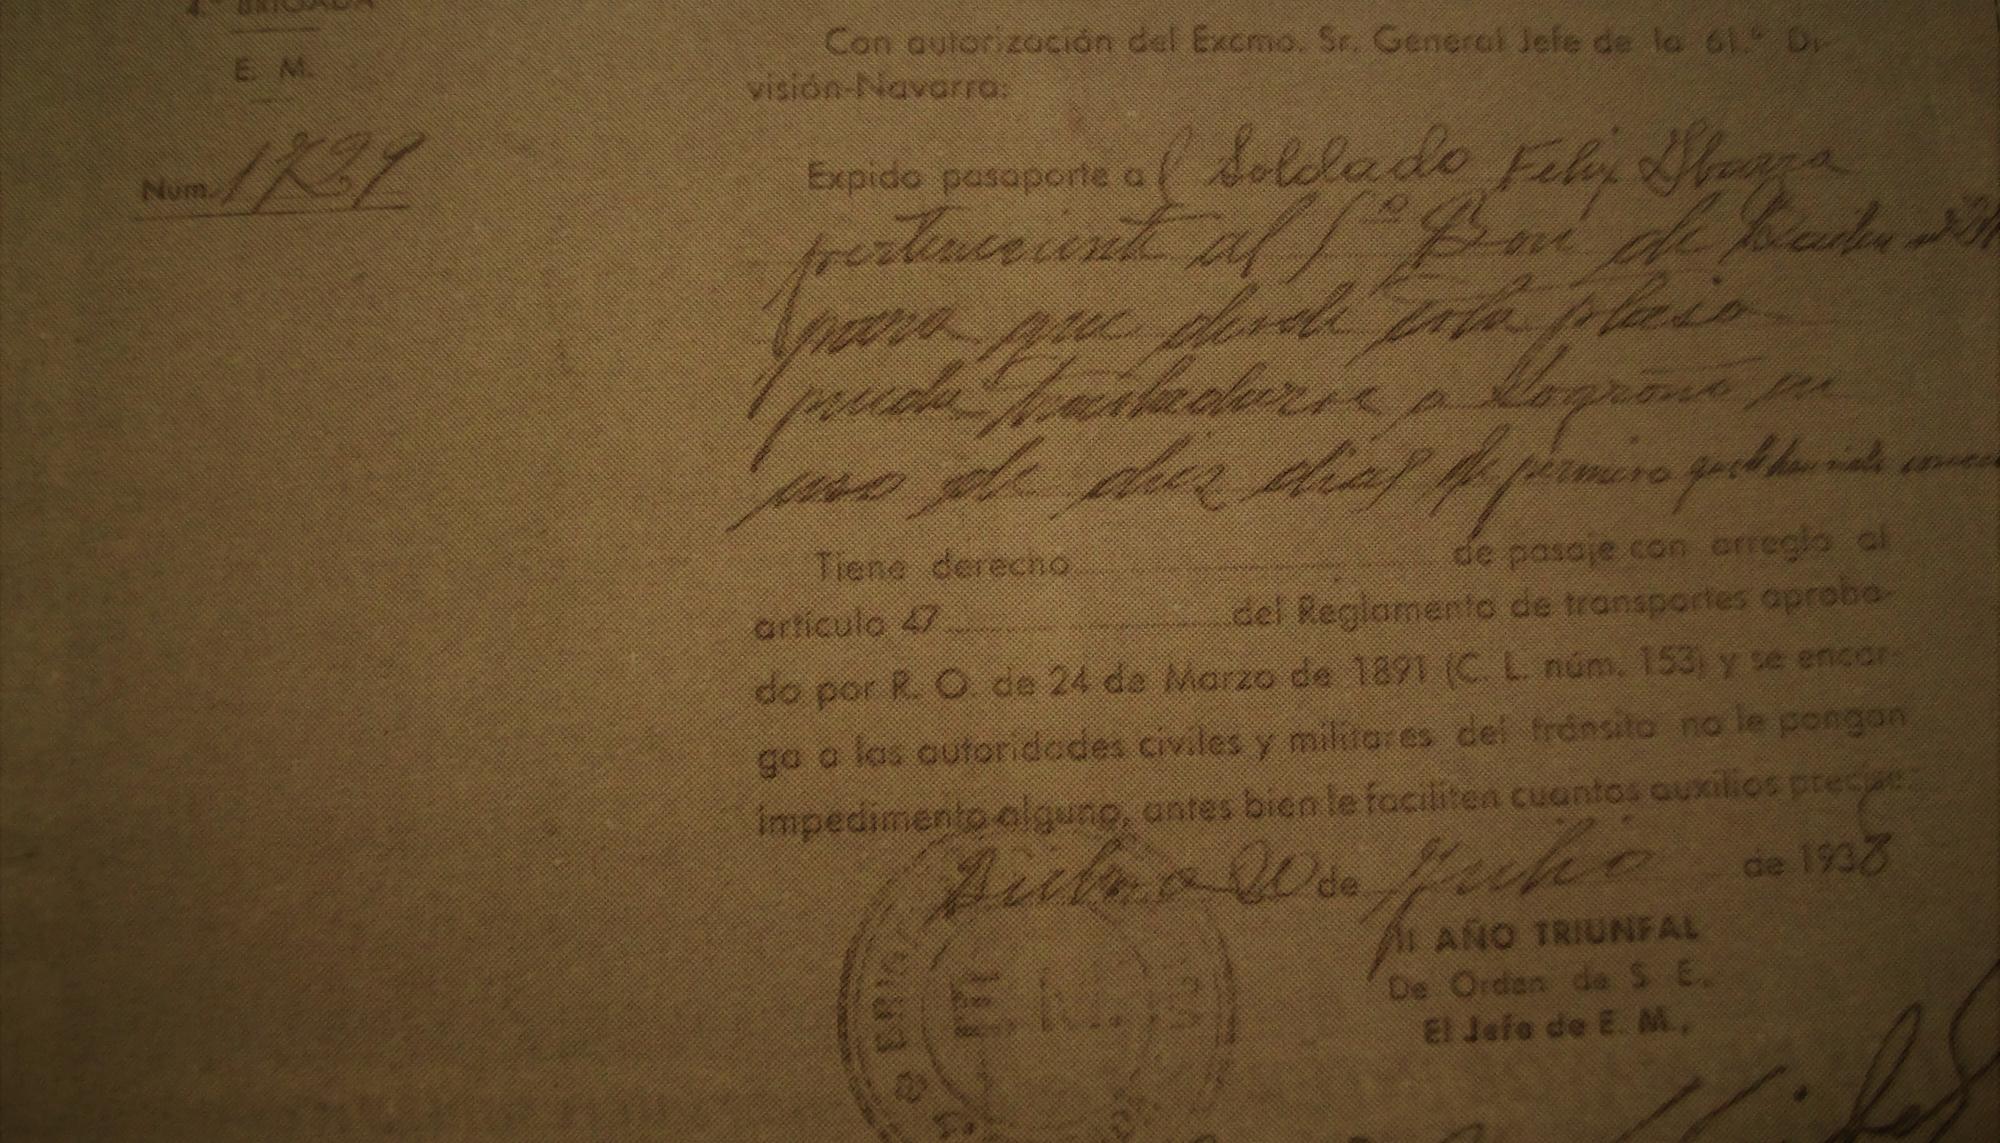 4.ª BRIGADA
E. M.
Num. 1729
Con autorización del Excmo. Sr. General Jefe de la 61.ª Di-
visión-Navarra:
Expido pasaporte al Soldado Felix Ibarra
perteneciente al 5º Bon de Bailen
para que desde esta plasa
pueda trasladarse a Logroño en
uso de diez dias de permiso que le han sido
Tiene derecho de pasaje con arreglo al
artículo 47 del Reglamento de transportes aproba-
do por R. O. de 24 de Marzo de 1891 (C. L. núm. 153) y se encar-
ga a las autoridades civiles y militares del tránsito no le pongan
impedimento alguno, antes bien le faciliten cuantos auxilios precise.
20 de Julio de 1938
II AÑO TRIUNFAL
De Orden de S. E.
El Jefe de E. M.,
E. M.